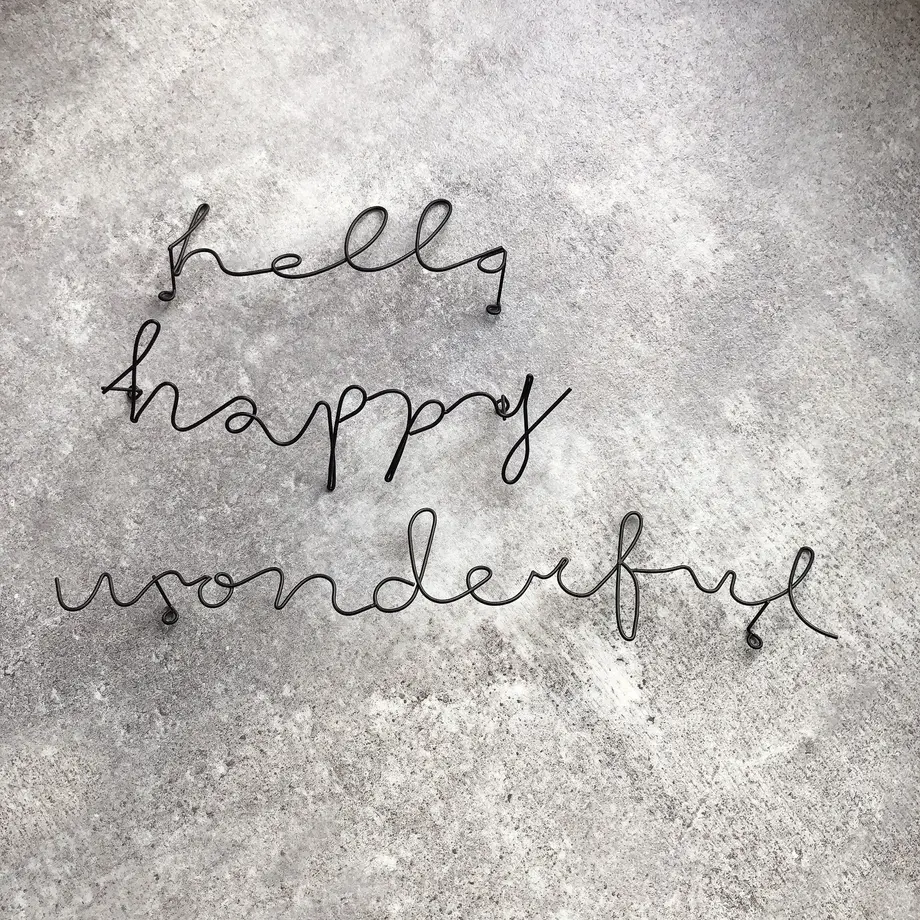 hello
happy
wonderful